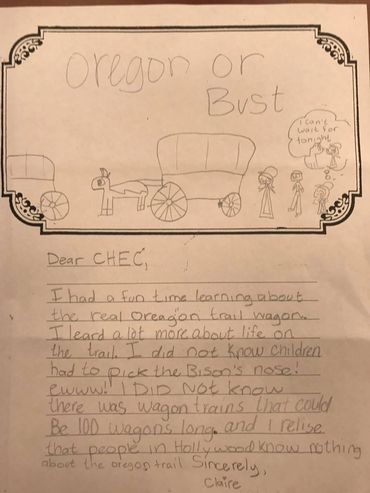 Oregon or
Bust
I can't
wait for
tonight
Dear CHEC,
I had a fun time learning about
the real Oreagon trail wagon.
I leard a lot more about life on
the trail. I did not know children
had to pick the Bison's nose!
ewww! I DID NOt know
there was wagon trains that could
Be 100 wagons long. and I relise
that people in Hollywood know nothing
about the oregon trail Sincerely,
Claire